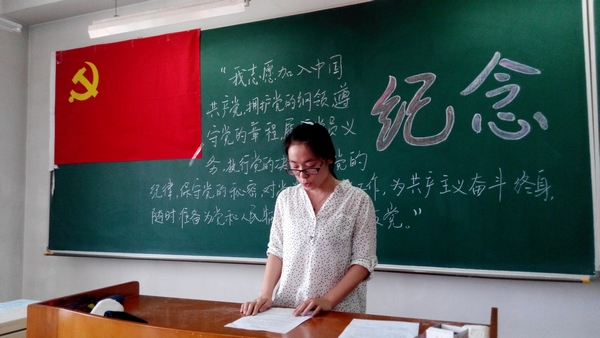 “我志愿加入中国
共产党，拥护党的纲领遵
守党的章程员义
务，执行党的党的
纪律，保守党的秘密，对作，为共产主义奋斗终身，
随时准备为党和人民党。”
纪念